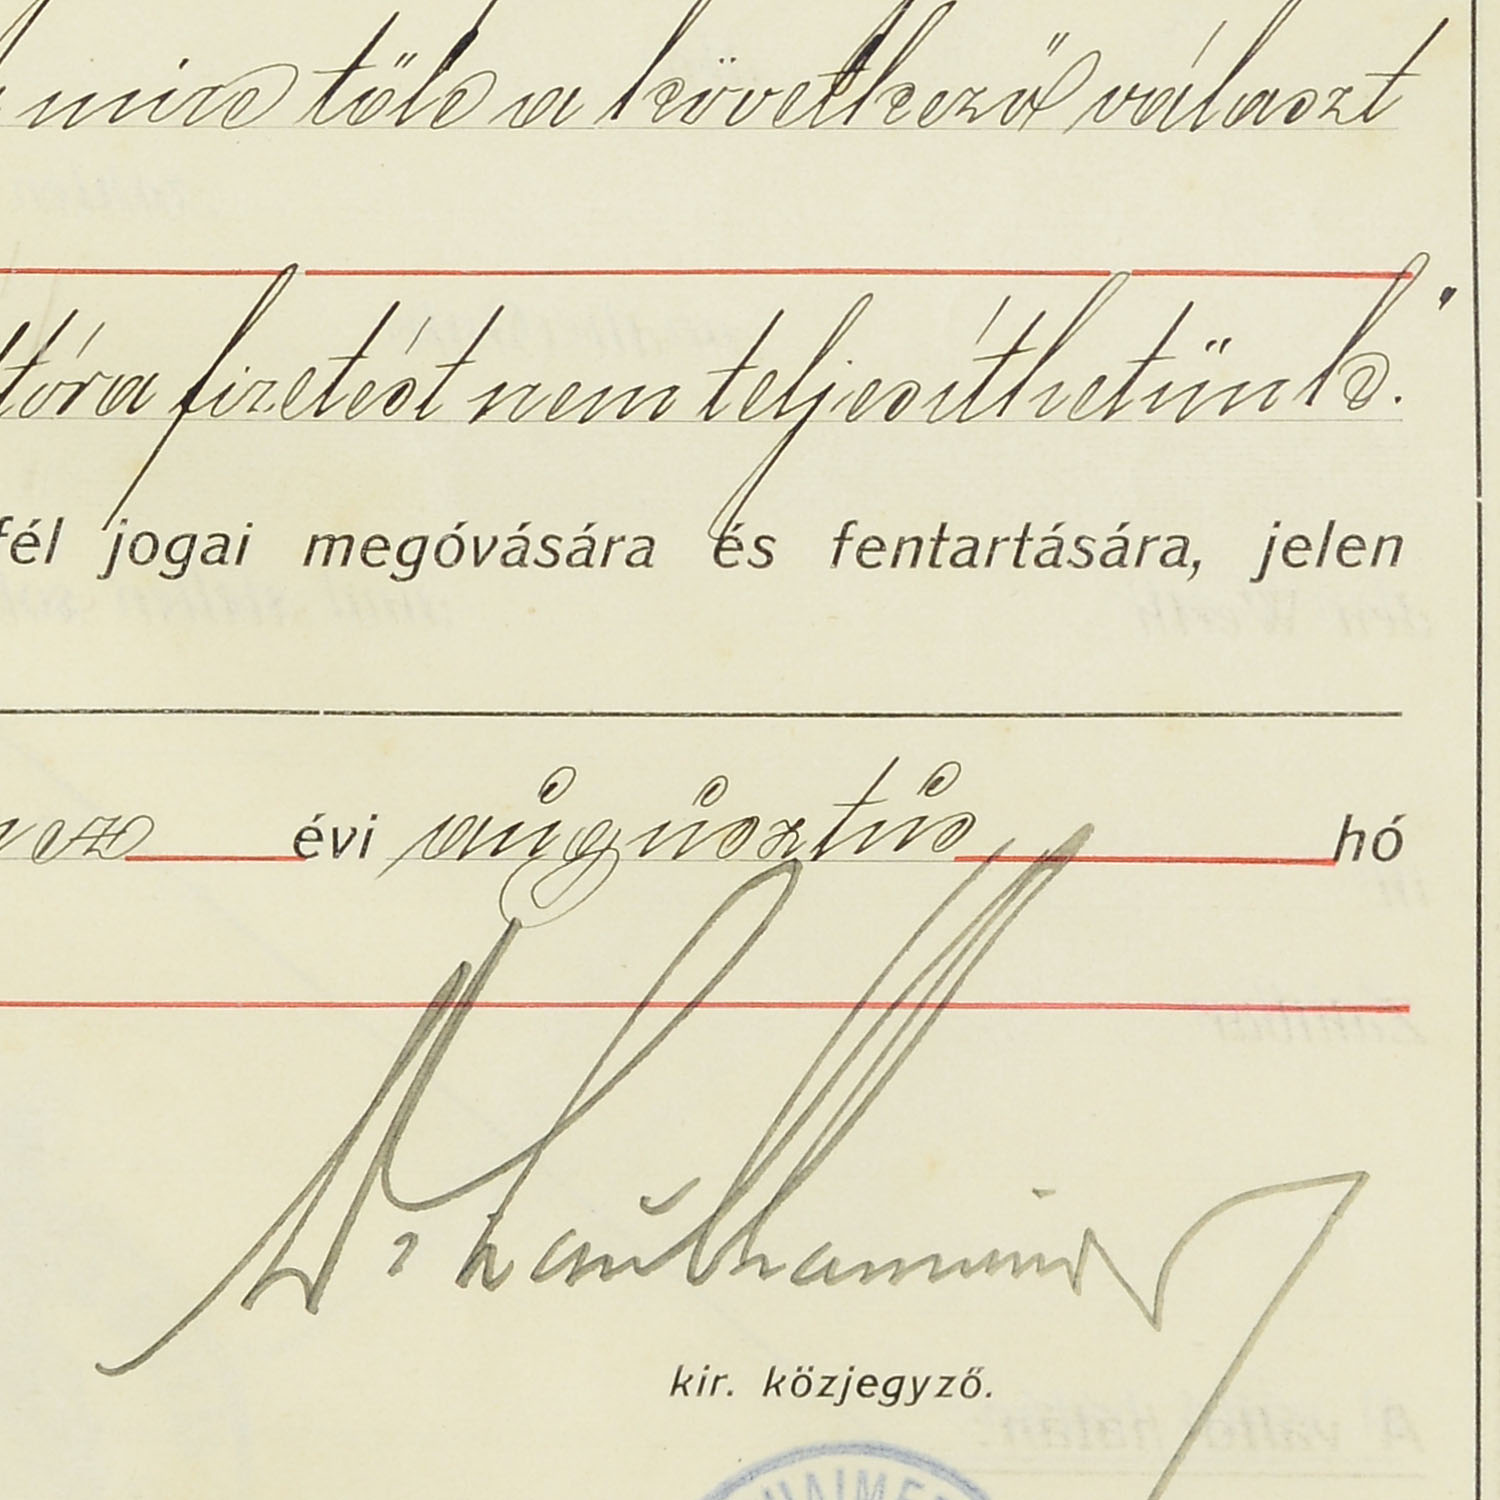 mire tőle a következő választ
fizetést nem teljesíthetünk."
fél jogai megóvására és fentartására, jelen
évi augusztus hó
kir. közjegyző.